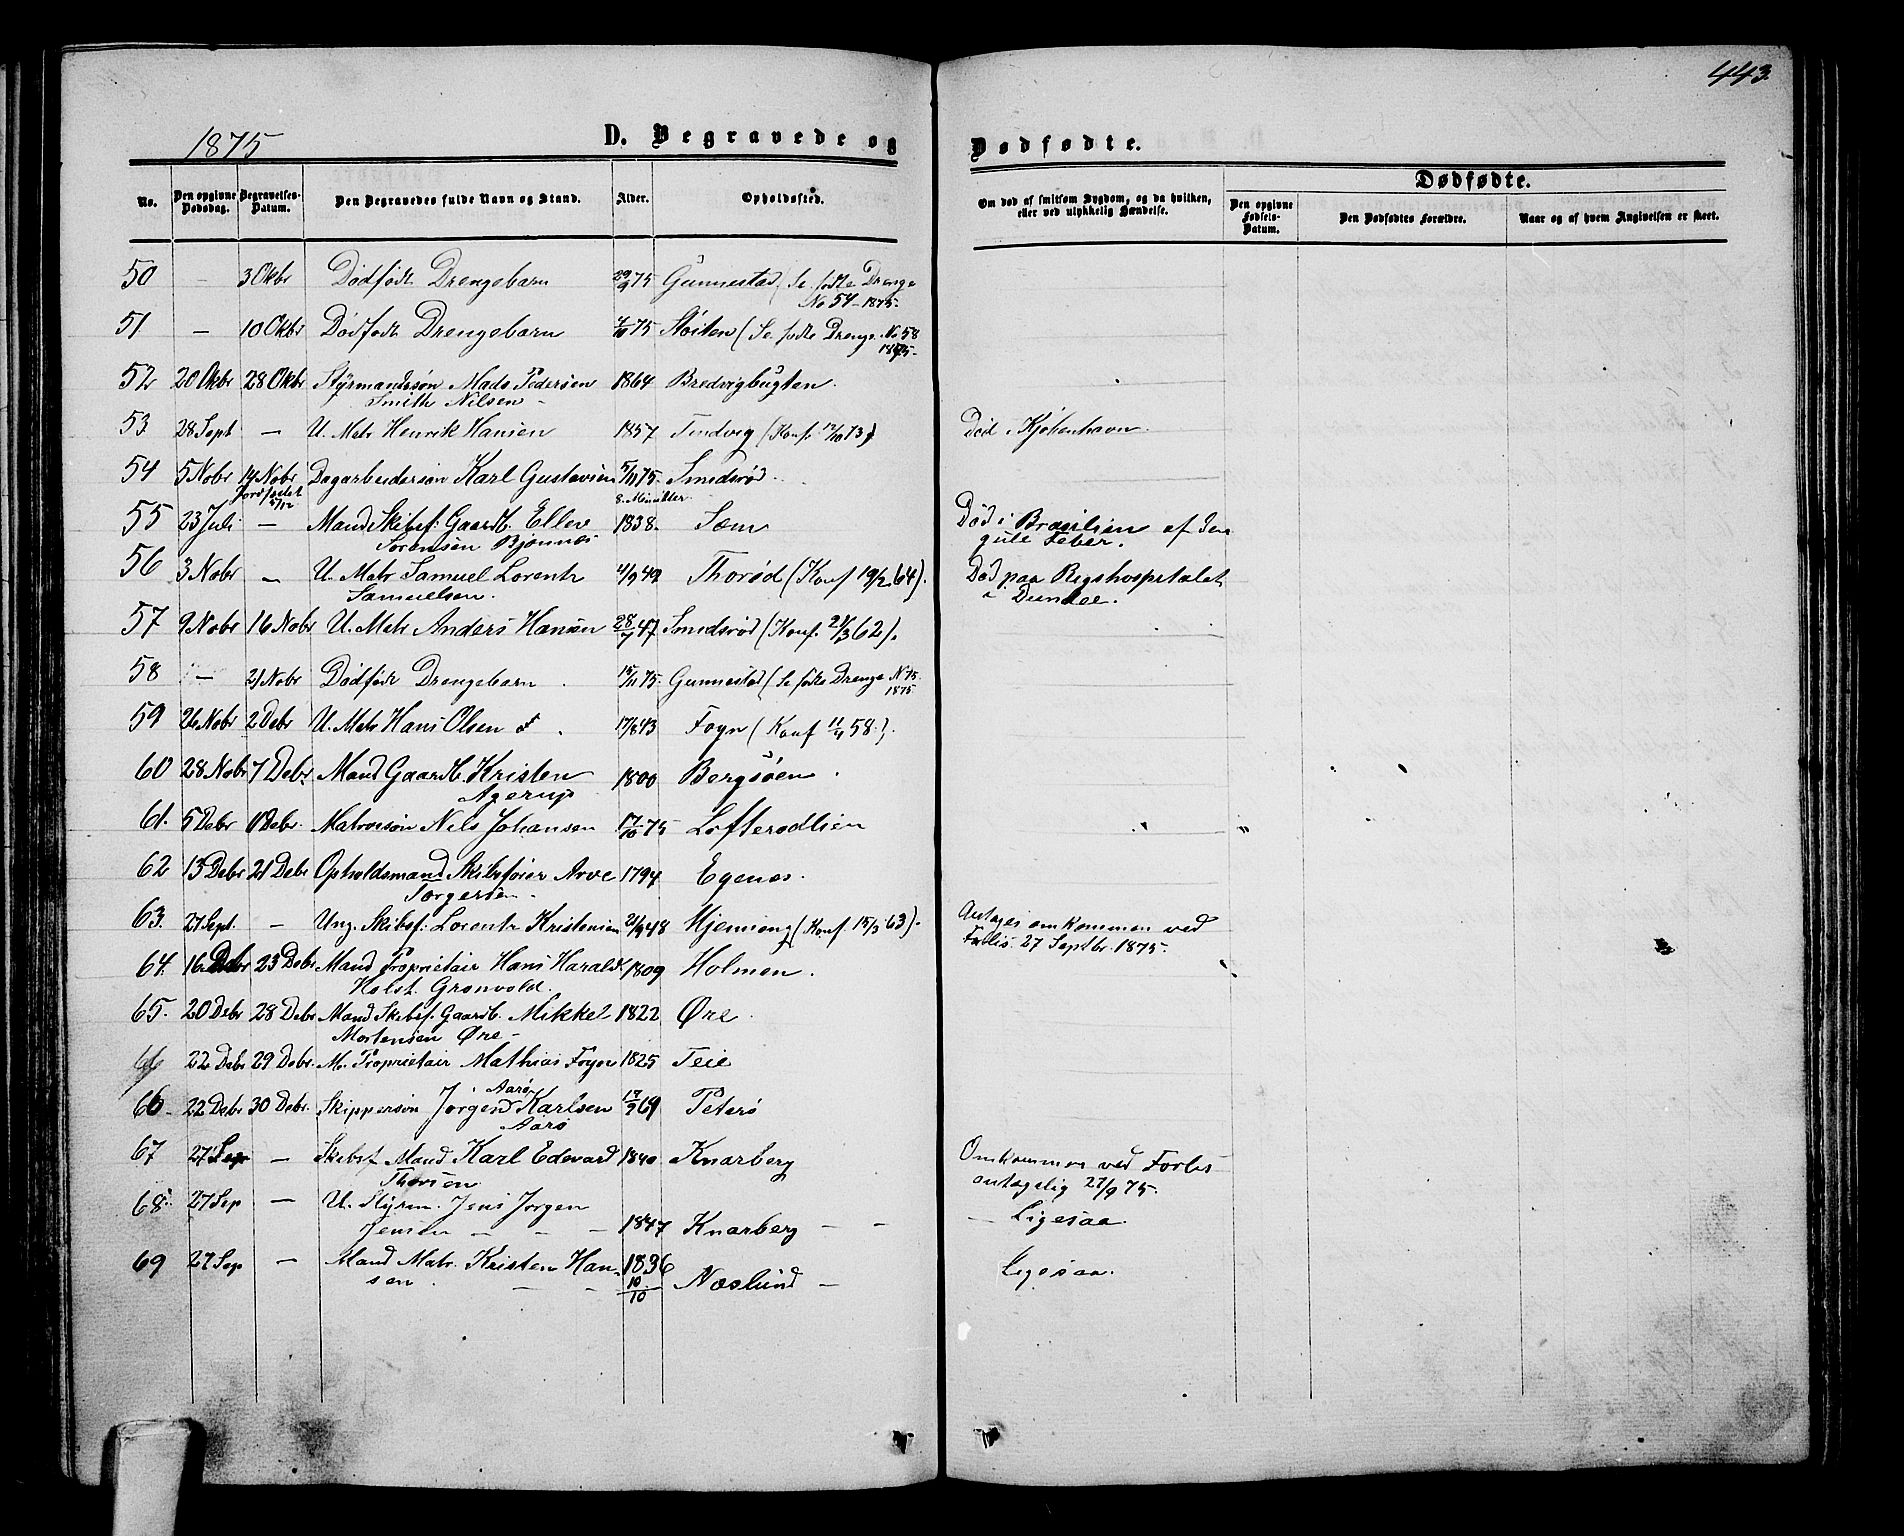 443.
1875
D. Begravede og Dødfødte.
No. Den opgivne Dødsdag. Begravelses-Datum. Den Begravedes fulde Navn og Stand. Alder. Opholdssted. Om død af smitsom Sygdom, og da hvilken, eller ved ulykkelig Hændelse. Dødfødte. Den opgivne Fødsels-Datum. Den Dødfødtes Forældre. Naar og af hvem Angivelsen er skeet.
50 — 3 Okbr Dødfødt Drengebarn 29/9 75 Gunnestad (Se fødte Drenge
No 54 - 1875.
51 — 10 Okbr Dødfødt Drengebarn 75 Støiten (Se fødte Drenge No 58
1875.
52 20 Okbr 28 Okbr Styrmandssøn Mads Pedersen 1864 Bredvigbugten.
Smith Nilsen -
53 28 Sept — U. Matr Henrik Hansen 1857 Tindvig (Konf. 12/10 73) Død i Kjøbenhavn.
54 5 Nobr 14 Nobr Dagarbeidersøn Karl Gustavsen 5/11 75. Smidsrød.
Jordfæstet 5/12 8. Minutter.
55 23 Juli — Mand Skibsf. Gaardb. Ellev 1838. Sem Død i Brasilien af den
Sørensen Bjønnes gule Feber.
56 3 Nobr — U. Matr Samuel Lorentz 4/9 49 Thorød (Konf 19/2 64). Død paa Rigshospitalet
Samuelsen. i Dundee.
57 9 Nobr 16 Nobr U. Matr Anders Hansen 28/7 47 Smidsrød (Konf. 2/3 62).
58 — 21 Nobr Dødfødt Drengebarn 15/11 75. Gunnestad (Se fødte Drenge No 75.
1875
59 26 Nobr 2 Debr U. Matr Hans Olsen 17/8 43 Foyn (Konf 11/4 58).
60 28 Nobr 7 Debr Mand Gaardb. Kristen 1800 Bergsøen.
Agerup
61. 5 Debr 11 Debr. Matrossøn Nils Johansen 17/10 75 Lofterødlien
62 13 Debr 21 Debr Opholdsmand Skibsfører Arve 1794 Egenes.
Torgersen -
63. 27 Sept. — Ung. Skibsf: Lorentz Kristensen 21/9 48 Hjemseng (Konf 15/3 63). Antages omkommen ved
Forlis. 27 Septbr. 1875.
64. 16 Debr 23 Debr Mand Proprietair Hans Harald 1809 Holmen.
Holst. Grønvold.
65. 20 Debr 28 Debr Mand Skibsf. Gaardb. Mikkel 1822 Øre.
Mortensen Øre -
66 22 Debr 29 Debr. M. Proprietair Mathias Foyn 1825 Teie
Aarø
66. 22 Debr 30 Debr. Skippersøn Jørgen Karlsen 17/9 69 Peterø
Aarø
67 27 Sep — Skibsf Mand Karl Edevard 1840 Knarberg Omkommen ved Forlis
Thorsen antagelig 27/9 75.
68. 27 Sep — U. Styrm. Jens Jørgen
Jensen — — 1847 Knarberg — — — Ligesaa.
69 27 Sep — Mand Matr. Kristen Han- 1836 Ligesaa.
sen. — — 10/10 Næslund —